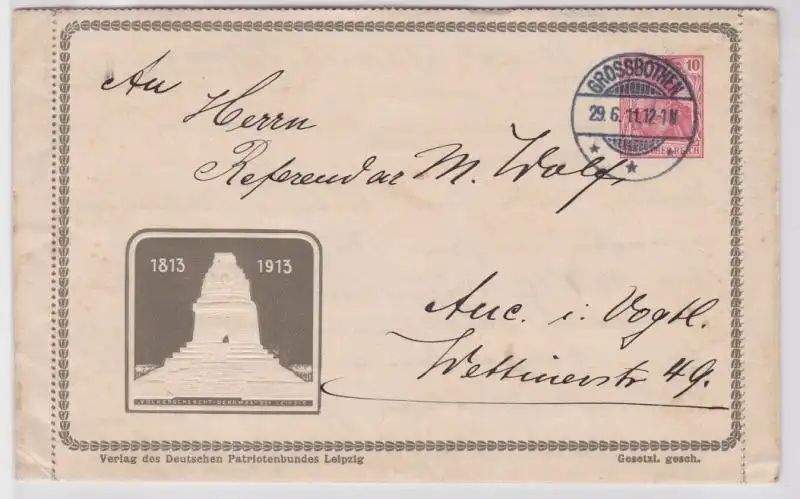 An
Herrn
Referendar M. Wolf,
Aue. i. Vogtl.
Wettinerstr 49.
GROSSBOTHEN
29.6.11.12-1N
10
DEUTSCHES REICH
1813 1913
VÖLKERSCHLACHT-DENKMAL BEI LEIPZIG
Verlag des Deutschen Patriotenbundes Leipzig
Gesetzl. gesch.